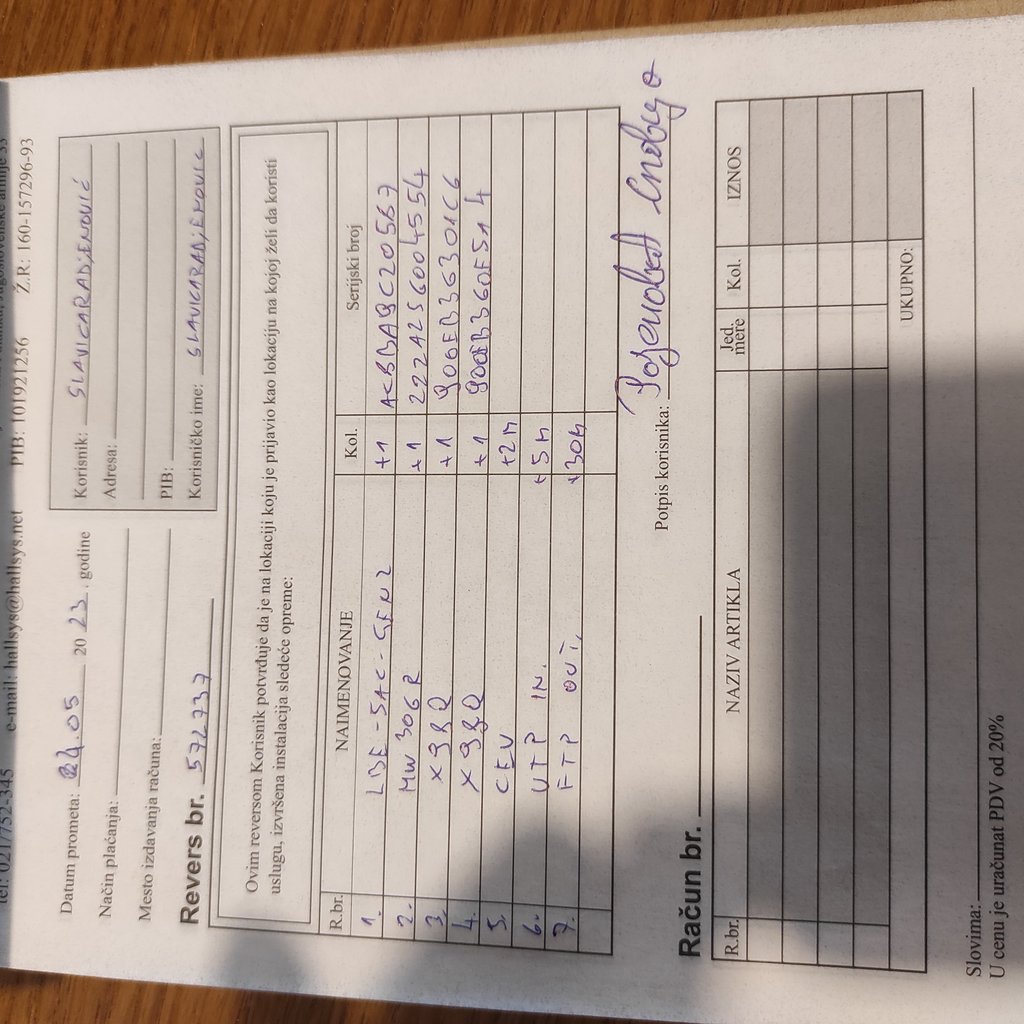 e-mail: hallsys@hallsys.net PIB: 101921256 Ž.R: 160-157296-93
Datum prometa: 24.05 2023. godine
Način plaćanja:
Mesto izdavanja računa:
Revers br. 572737
Korisnik: SLAVICARADJENOVIĆ
Adresa:
PIB:
Korisničko ime: SLAVICARADJENOVIC
Ovim reversom Korisnik potvrđuje da je na lokaciji koju je prijavio kao lokaciju na kojoj želi da koristi
uslugu, izvršena instalacija sledeće opreme:
R.br. NAIMENOVANJE Kol. Serijski broj
1. LBE-5AC-GEN2 +1 AC8BA9C20567
2. MW306R +1 2224256004554
3. X98Q +1 906EB36301C6
4. X98Q +1
5. CEV +2M
6. UTP IN. +5M
7. FTP OUT. +30M
Potpis korisnika:
Račun br.
R.br. NAZIV ARTIKLA Jed. mere Kol. IZNOS
UKUPNO:
Slovima:
U cenu je uračunat PDV od 20%